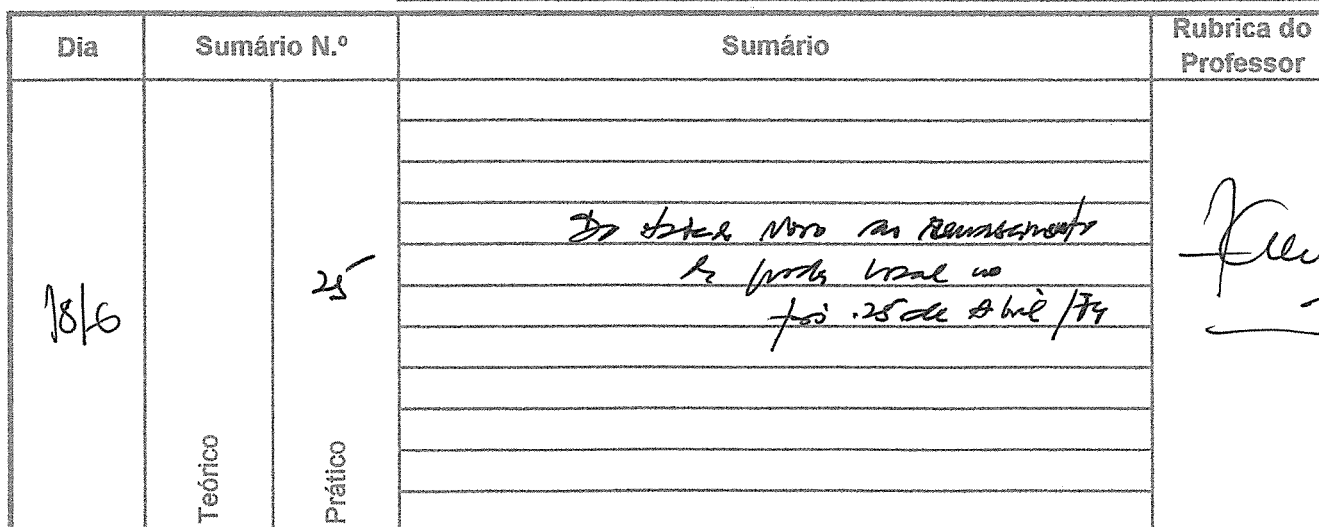 Dia Sumário N.º Sumário Rubrica do Professor
18/6 25
Do Estado Novo ao renascimento
do poder local no
pós .25 de Abril /74
Teórico Prático